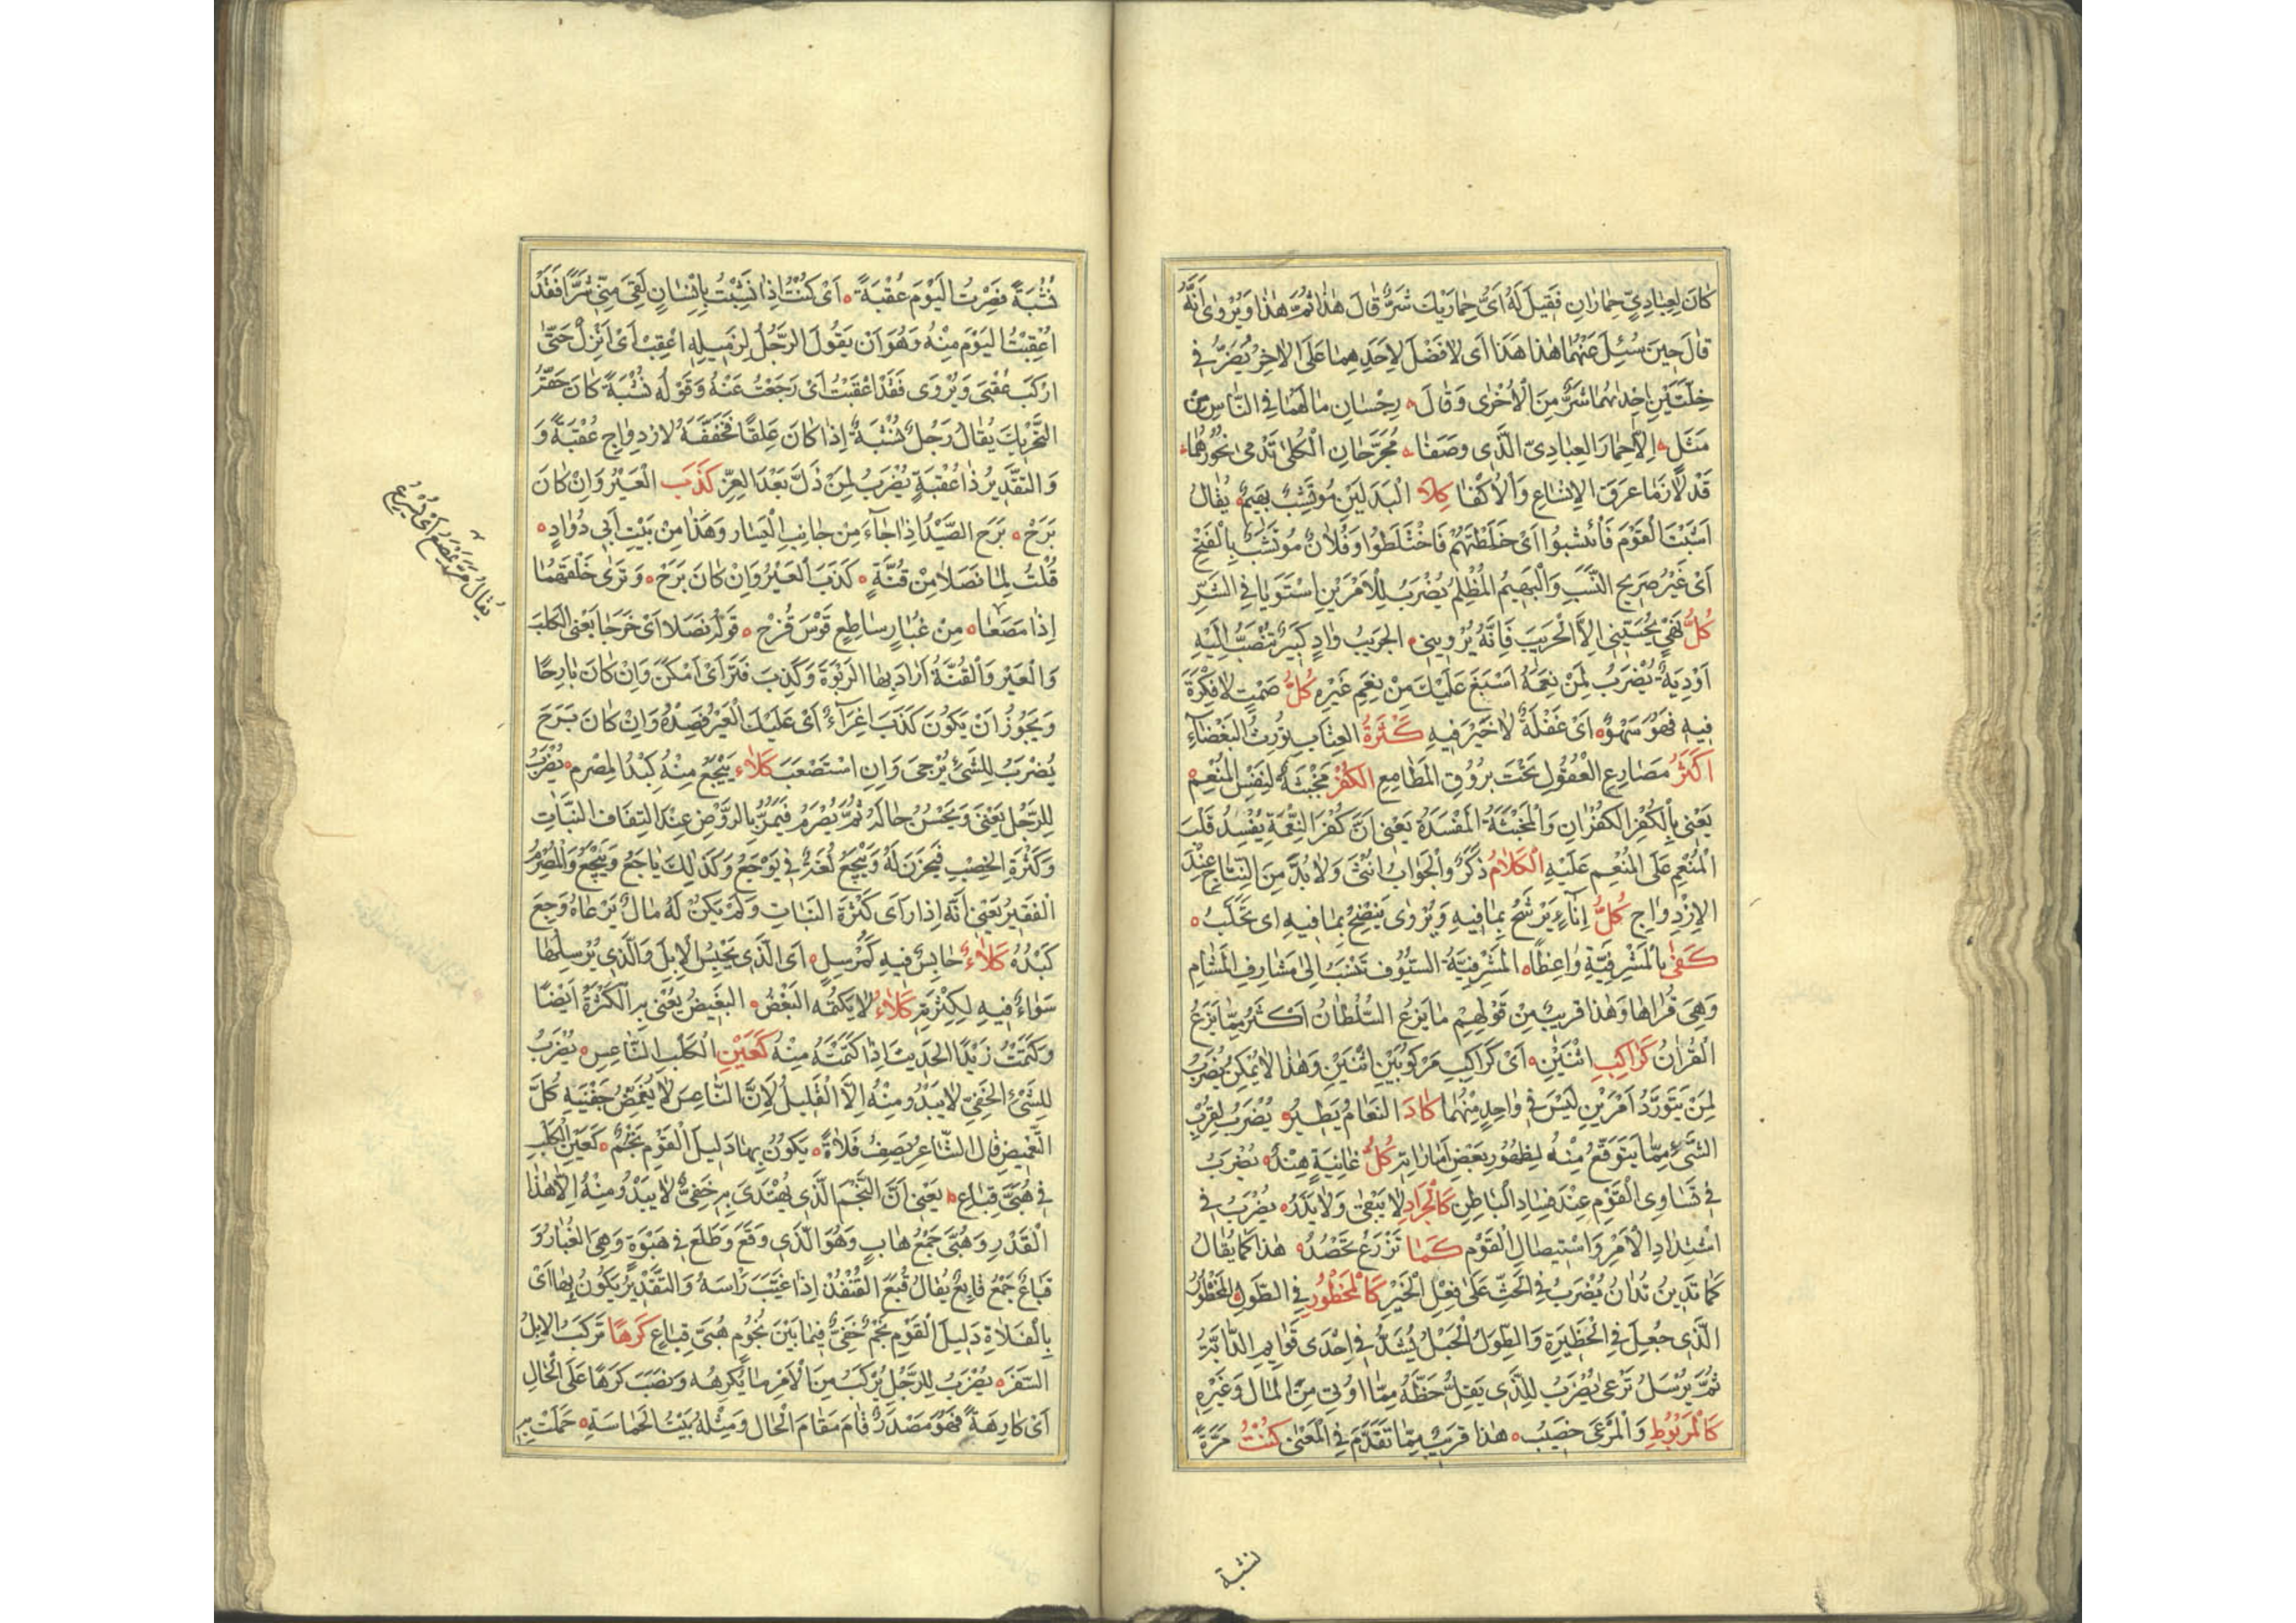 كَانَ لِعِبَادِيٍّ حِمَارَانِ فَقِيلَ لَهُ اَىُّ حِمَارَيْكَ شَرٌّ قَالَ هٰذَا ثُمَّ هٰذَا وَيُرْوٰى اَنَّهُ
قَالَ حِينَ سُئِلَ عَنْهُمَا هٰذَا هَذَا اَى لَا فَضْلَ لِاَحَدِهِمَا عَلَى الْاٰخِرِ يُضْرَبُ فِى
خِلَّتَيْنِ اِحْدٰىهُمَا شَرٌّ مِنَ الْاُخْرٰى وَقَالَ رِجْسَانِ مَا لَهُمَا فِى النَّاسِ مِنْ
مَثَلٍ اِلَّا حِمَارَ العِبَادِىِّ الَّذِى وَصَفَا مُجَرَّحَانِ الْكُلٰى تَدْمٰى نُحُورُهُمَا
قَدْ لَازَمَا عَرَقَ الْاِنْسَاعِ وَالْاُكْفَا كِلَا الْبَدَلَيْنِ مُؤْتَشِبٌ بَهِيمٌ يُقَالُ
اَشَّبْتُ الْقَوْمَ فَأْتَشَبُوا اَىْ خَلَطْتَهُمْ فَاخْتَلَطُوا وَفُلَانٌ مُؤْتَشَبٌ بِالْفَتْحِ
اَىْ غَيْرُ صَرِيحِ النَّسَبِ وَالْبَهِيمُ الْمُظْلِمُ يُضْرَبُ لِلْاَمْرَيْنِ اسْتَوَيَا فِى الشَّرِّ
كُلُّ نَهْىٍ يُحْسِبُنِى اِلَّا الْجَرِيبَ فَاِنَّهُ يُرْوِينِى الجَرِيبُ وَادٍ كَبِيرٌ تَنْصَبُّ اِلَيْهِ
اَوْدِيَةٌ يُضْرَبُ لِمَنْ نِعَمُهُ اَسْبَغَ عَلَيْكَ مِنْ نِعَمِ غَيْرِهِ كُلُّ صَمْتٍ لَا فِكْرَةَ
فِيهِ فَهُوَ سَهْوٌ اَىْ غَفْلَةٌ لَا خَيْرَ فِيهِ كَثْرَةُ العِتَابِ يُورِثُ الْبَغْضَآءَ
اَكْثَرُ مَصَارِعِ الْعُقُولِ تَحْتَ بُرُوقِ الْمَطَامِعِ الكُفْرُ مَخْبَثَةٌ لِنَفْسِ الْمُنْعِمِ
يَعْنِى بِالْكُفْرِ الكُفْرَانِ وَالْمَخْبَثَةُ الْمَفْسَدَةُ يَعْنِى اَنَّ كُفْرَ النِّعْمَةِ يُفْسِدُ قَلْبَ
الْمُنْعِمِ عَلَى الْمُنْعَمِ عَلَيْهِ الْكَلَامُ ذَكَرٌ وَالْجَوَابُ اُنْثٰى وَلَا بُدَّ مِنَ النِّتَاجِ عِنْدَ
الاِزْدِوَاجِ كُلُّ اِنَآءٍ يَرْشَحُ بِمَا فِيهِ وَيُرْوٰى يَنْضِحُ بِمَا فِيهِ اى تَحَلَّبُ
كَفٰى بِالْمَشْرَفِيَّةِ وَاعِظًا الْمَشْرَفِيَّةُ السُّيُوفُ تُنْسَبُ اِلٰى مَشَارِفِ الْشَّامِ
وَهِىَ قُرَاهَا وَهٰذَا قَرِيبٌ مِنْ قَوْلِهِمْ مَا يَزَعُ السُّلْطَانُ اَكْثَرُ مِمَّا يَزَعُ
الْقُرْاٰنُ كَرَاكِبِ اثْنَيْنِ اَىْ كَرَاكِبِ مَرْكُوبَيْنِ اثْنَيْنِ وَهٰذَا لَا يُمْكِنُ يُضْرَبُ
لِمَنْ يَتَوَرَّدُ اَمْرَيْنِ لَيْسَ فِى وَاحِدٍ مِنْهُمَا كَادَ النَعَامُ يَطِيرُ يُضْرَبُ لِقُرْبِ
الشَّىْءِ مِمَّا يَتَوَقَّعُ مِنْهُ لِظُهُورِ بَعْضِ اَمَارَاتِهِ كُلُّ غَانِيَةٍ هِنْدُ يُضْرَبُ
فِى تَسَاوِى الْقَوْمِ عِنْدَ فَسَادِ الْبَاطِنِ كَالْجَرَادِ لَا يَبْقٰى وَلَا يَذَرُ يُضْرَبُ فِى
اشْتِدَادِ الْاَمْرِ وَاسْتِيصَالِ الْقَوْمِ كَمَا تَزْرَعْ تَحْصُدُ هٰذَا كَمَا يُقَالُ
كَمَا تَدِينُ تُدَانُ يُضْرَبُ فِى الْحَثِّ عَلٰى فِعْلِ الْخَيْرِ كَالْمَحْظُورِ فِى الطِّوَلِ الْمَحْظُورُ
الَّذِى جُعِلَ فِى الْحَظِيرَةِ وَالطِّوَلُ الْحَبْلُ يُشَدُّ فِى اِحْدَى قَوَايِمِ الدَّابَّةِ
ثُمَّ يُرْسَلُ تَرْعٰى يُضْرَبُ لِلَّذِى يَقِلُّ حَظُّهُ مِمَّا اُوتِىَ مِنَ الْمَالِ وَغَيْرِهِ
كَالْمَرْبُوطِ وَالْمَرْعَى خَصِيبُ هٰذَا قَرِيبٌ مِمَّا تَقَدَّمَ فِى الْمَعْنٰى كُنْتُ مَرَّةً
نشبة
نُشْبَةً فَصِرْتُ الْيَوْمَ عُقْبَةً اَىْ كُنْتُ اِذَا نَشِبْتُ بِاِنْسَانٍ لَقِىَ مِنِّى شَرًّا فَقَدْ
اُعْقِبْتُ الْيَوْمَ مِنْهُ وَهُوَ اَنْ يَقُولَ الرَّجُلُ لِزَمِيلِهِ اعْقِبْ اَىْ اَنْزِلْ حَتّٰى
ارْكَبَ عُقْبَى وَيُرْوَى فَقَدْ اَعْقَبْتُ اَىْ رَجَعْتُ عَنْهُ وَقَوْلُهُ نُشْبَةً كَانَ حَقَّهُ
التَّحْرِيكَ يُقَالُ رَجُلٌ نُشْبَةٌ اِذَا كَانَ عَلِقًا فَخَفَّفَهُ لِازْدِوَاجِ عُقْبَةً وَ
وَالتَقْدِيرُ ذَا عُقْبَةٍ يُضْرَبُ لِمَنْ ذَلَّ بَعْدَ العِزِّ كَذَبَ الْعَيْرُ وَاِنْ كَانَ
بَرَحْ بَرَحَ الصَّيْدُ اِذَا جَآءَ مِنْ جَانِبِ الْيَسَارِ وَهَذَا مِنْ بَيْتِ اَبِى دُوَادٍ
قُلْتُ لِمَا نَصَلَا مِنْ قُنَّةٍ كَذَبَ الْعَيْرُ وَاِنْ كَانَ بَرَحْ وَتَرٰى خَلْفَهُمَا
اِذْ مَصَعَا مِنْ غُبَارٍ سَاطِعٍ قَوْسَ قُزَحْ قَوْلُهُ نَصَلَا اَىْ خَرَجَا يَعْنِى الْكَلْبَ
وَالْعَيْرَ وَالْقُنَّةُ اَرَادَ بِهَا الرَّبْوَةَ وَكَذِبَ فَتَرَ اَىْ اَمْكَنَ وَاِنْ كَانَ بَارِحًا
وَيَجُوزُ اَنْ يَكُونَ كَذَبَ اِغْرَآءً اَىْ عَلَيْكَ الْعَيْرَ فَصِدْهُ وَاِنْ كَانَ بَرَحَ
يُضْرَبُ لِلشَّىْءِ يُرْجٰى وَاِنِ اسْتَصْعَبَ كَلَاءٌ يَيْجَعُ مِنْهُ كِبْدُ المُصْرِمِ يُضْرَبُ
لِلرَّجُلِ يَغْنَى وَيَحْسُنُ حَالُهُ ثُمَّ يُصْرِمُ فَيَمُرُّ بِالرَّوْضِ عِنْدَ الْتِفَافِ النَّبَاتِ
وَكَثْرَةِ الخِصْبِ فَيَحْزَنُ لَهُ وَيَيْجَعُ لُغَةٌ فِى يَوْجَعُ وَكَذٰلِكَ يَاجَعُ وَيِيْجَعُ وَالْمُصْرِمُ
الْفَقِيرُ يَعْنِى اَنَّهُ اِذَا رَاَى كَثْرَةَ النَّبَاتِ وَلَمْ يَكُنْ لَهُ مَالٌ يَرْعَاهُ وَجِعَ
كَبِدُهُ كَلَاءٌ حَابِسٌ فِيهِ كَمُرْسِلٍ اَى الَّذِى يَحْبِسُ الْاِبِلَ وَالَّذِى يُرْسِلُهَا
سَوَاءٌ فِيهِ لِكَثْرَتِهِ كَلَاءٌ لَا يَكْتُمُهُ الْبَغْضُ البَغِيضُ يُعْنٰى بِهِ الْكَثْرَةُ اَيْضًا
وَكَتَمْتُ زَيْدًا الحَدِيثَ اِذَا كَتَمْتَهُ مِنْهُ كَعَيْنِ الْكَلْبِ النَّاعِسِ يُضْرَبُ
لِلشَّىْءِ الخَفِىِّ لَا يَبْدُو مِنْهُ اِلَّا الْقَلِيلُ لِاَنَّ النَّاعِسَ لَا يُغَمِّضُ جَفْنَيْهِ كُلَّ
الَّغْمِيضِ قَالَ الشَّاعِرُ يَصِفُ فَلَاةً يَكُونُ بِهَا دَلِيلَ الْقَوْمِ نَجْمٌ كَعَيْنِ الْكَلْبِ
فِى هُبَّى قِبَاعِ يَعْنِى اَنَّ النَّجْمَ الَّذِى يُهْتَدَى بِهِ خَفِىٌّ لَا يَبْدُو مِنْهُ اِلَّا هٰذَا
الْقَدْرِ وَهُبَّى جَمْعُ هَابٍ وَهُوَ الَّذِى وَقَعَ وَطَلَعَ فِى هَبْوَةٍ وَهِىَ الْغُبَارُ وَ
قِبَاعٌ جَمْعُ قَابِعٍ يُقَالُ قَبَعَ الْقُنْفُذُ اِذَا غَيَّبَ رَاْسَهُ وَالتَّقْدِيرُ يَكُونُ بِهَا اَىْ
بِالْفَلَاةِ دَلِيلَ الْقَوْمِ نَجْمٌ خَفِىٌّ فِيمَا بَيْنَ نُجُومٍ هُبَّى قِبَاعٍ كَرْهًا تَرْكَبُ الْاِبِلُ
السَّفَرَ يُضْرَبُ لِلرَّجُلِ يَرْكَبُ مِنَ الْاَمْرِ مَا يَكْرَهُهُ وَنَصَبَ كَرْهًا عَلَى الْحَالِ
اَىْ كَارِهَةً فَهُوَ مَصْدَرٌ قَامَ مَقَامَ الْحَالِ وَمِثْلُهُ بَيْتُ الْحَمَاسَةِ حَمَلَتْ بِهِ
يُقَالُ مَرَّ يَمْصَعُ اَىْ يُسْرِعُ